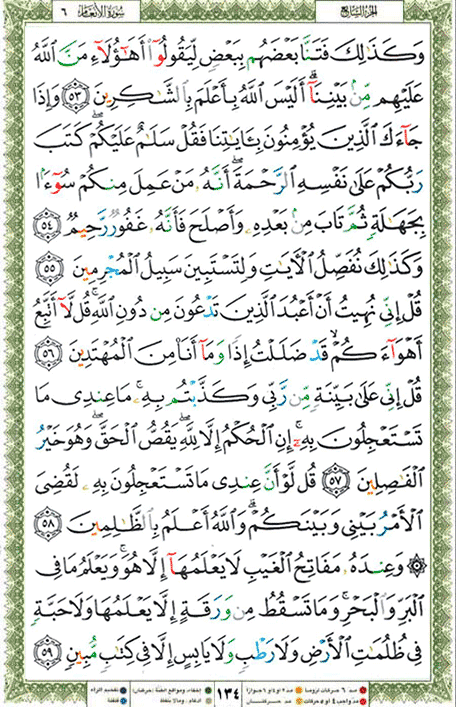 سورة الأنعام ٦
الجزء السابع
وَكَذَٰلِكَ فَتَنَّا بَعْضَهُم بِبَعْضٍ لِّيَقُولُوٓا۟ أَهَٰٓؤُلَآءِ مَنَّ ٱللَّهُ
عَلَيْهِم مِّنۢ بَيْنِنَآ ۗ أَلَيْسَ ٱللَّهُ بِأَعْلَمَ بِٱلشَّٰكِرِينَ ٥٣ وَإِذَا
جَآءَكَ ٱلَّذِينَ يُؤْمِنُونَ بِـَٔايَٰتِنَا فَقُلْ سَلَٰمٌ عَلَيْكُمْ ۖ كَتَبَ
رَبُّكُمْ عَلَىٰ نَفْسِهِ ٱلرَّحْمَةَ ۖ أَنَّهُۥ مَنْ عَمِلَ مِنكُمْ سُوٓءًۢا
بِجَهَٰلَةٍ ثُمَّ تَابَ مِنۢ بَعْدِهِۦ وَأَصْلَحَ فَأَنَّهُۥ غَفُورٌ رَّحِيمٌ ٥٤
وَكَذَٰلِكَ نُفَصِّلُ ٱلْـَٔايَٰتِ وَلِتَسْتَبِينَ سَبِيلُ ٱلْمُجْرِمِينَ ٥٥
قُلْ إِنِّى نُهِيتُ أَنْ أَعْبُدَ ٱلَّذِينَ تَدْعُونَ مِن دُونِ ٱللَّهِ ۚ قُل لَّآ أَتَّبِعُ
أَهْوَآءَكُمْ ۙ قَدْ ضَلَلْتُ إِذًا وَمَآ أَنَا۠ مِنَ ٱلْمُهْتَدِينَ ٥٦
قُلْ إِنِّى عَلَىٰ بَيِّنَةٍ مِّن رَّبِّى وَكَذَّبْتُم بِهِۦ ۚ مَا عِندِى مَا
تَسْتَعْجِلُونَ بِهِۦٓ ۚ إِنِ ٱلْحُكْمُ إِلَّا لِلَّهِ ۖ يَقُصُّ ٱلْحَقَّ ۖ وَهُوَ خَيْرُ
ٱلْفَٰصِلِينَ ٥٧ قُل لَّوْ أَنَّ عِندِى مَا تَسْتَعْجِلُونَ بِهِۦ لَقُضِىَ
ٱلْأَمْرُ بَيْنِى وَبَيْنَكُمْ ۗ وَٱللَّهُ أَعْلَمُ بِٱلظَّٰلِمِينَ ٥٨
۞ وَعِندَهُۥ مَفَاتِحُ ٱلْغَيْبِ لَا يَعْلَمُهَآ إِلَّا هُوَ ۚ وَيَعْلَمُ مَا فِى
ٱلْبَرِّ وَٱلْبَحْرِ ۚ وَمَا تَسْقُطُ مِن وَرَقَةٍ إِلَّا يَعْلَمُهَا وَلَا حَبَّةٍ
فِى ظُلُمَٰتِ ٱلْأَرْضِ وَلَا رَطْبٍ وَلَا يَابِسٍ إِلَّا فِى كِتَٰبٍ مُّبِينٍ ٥٩
١٣٤